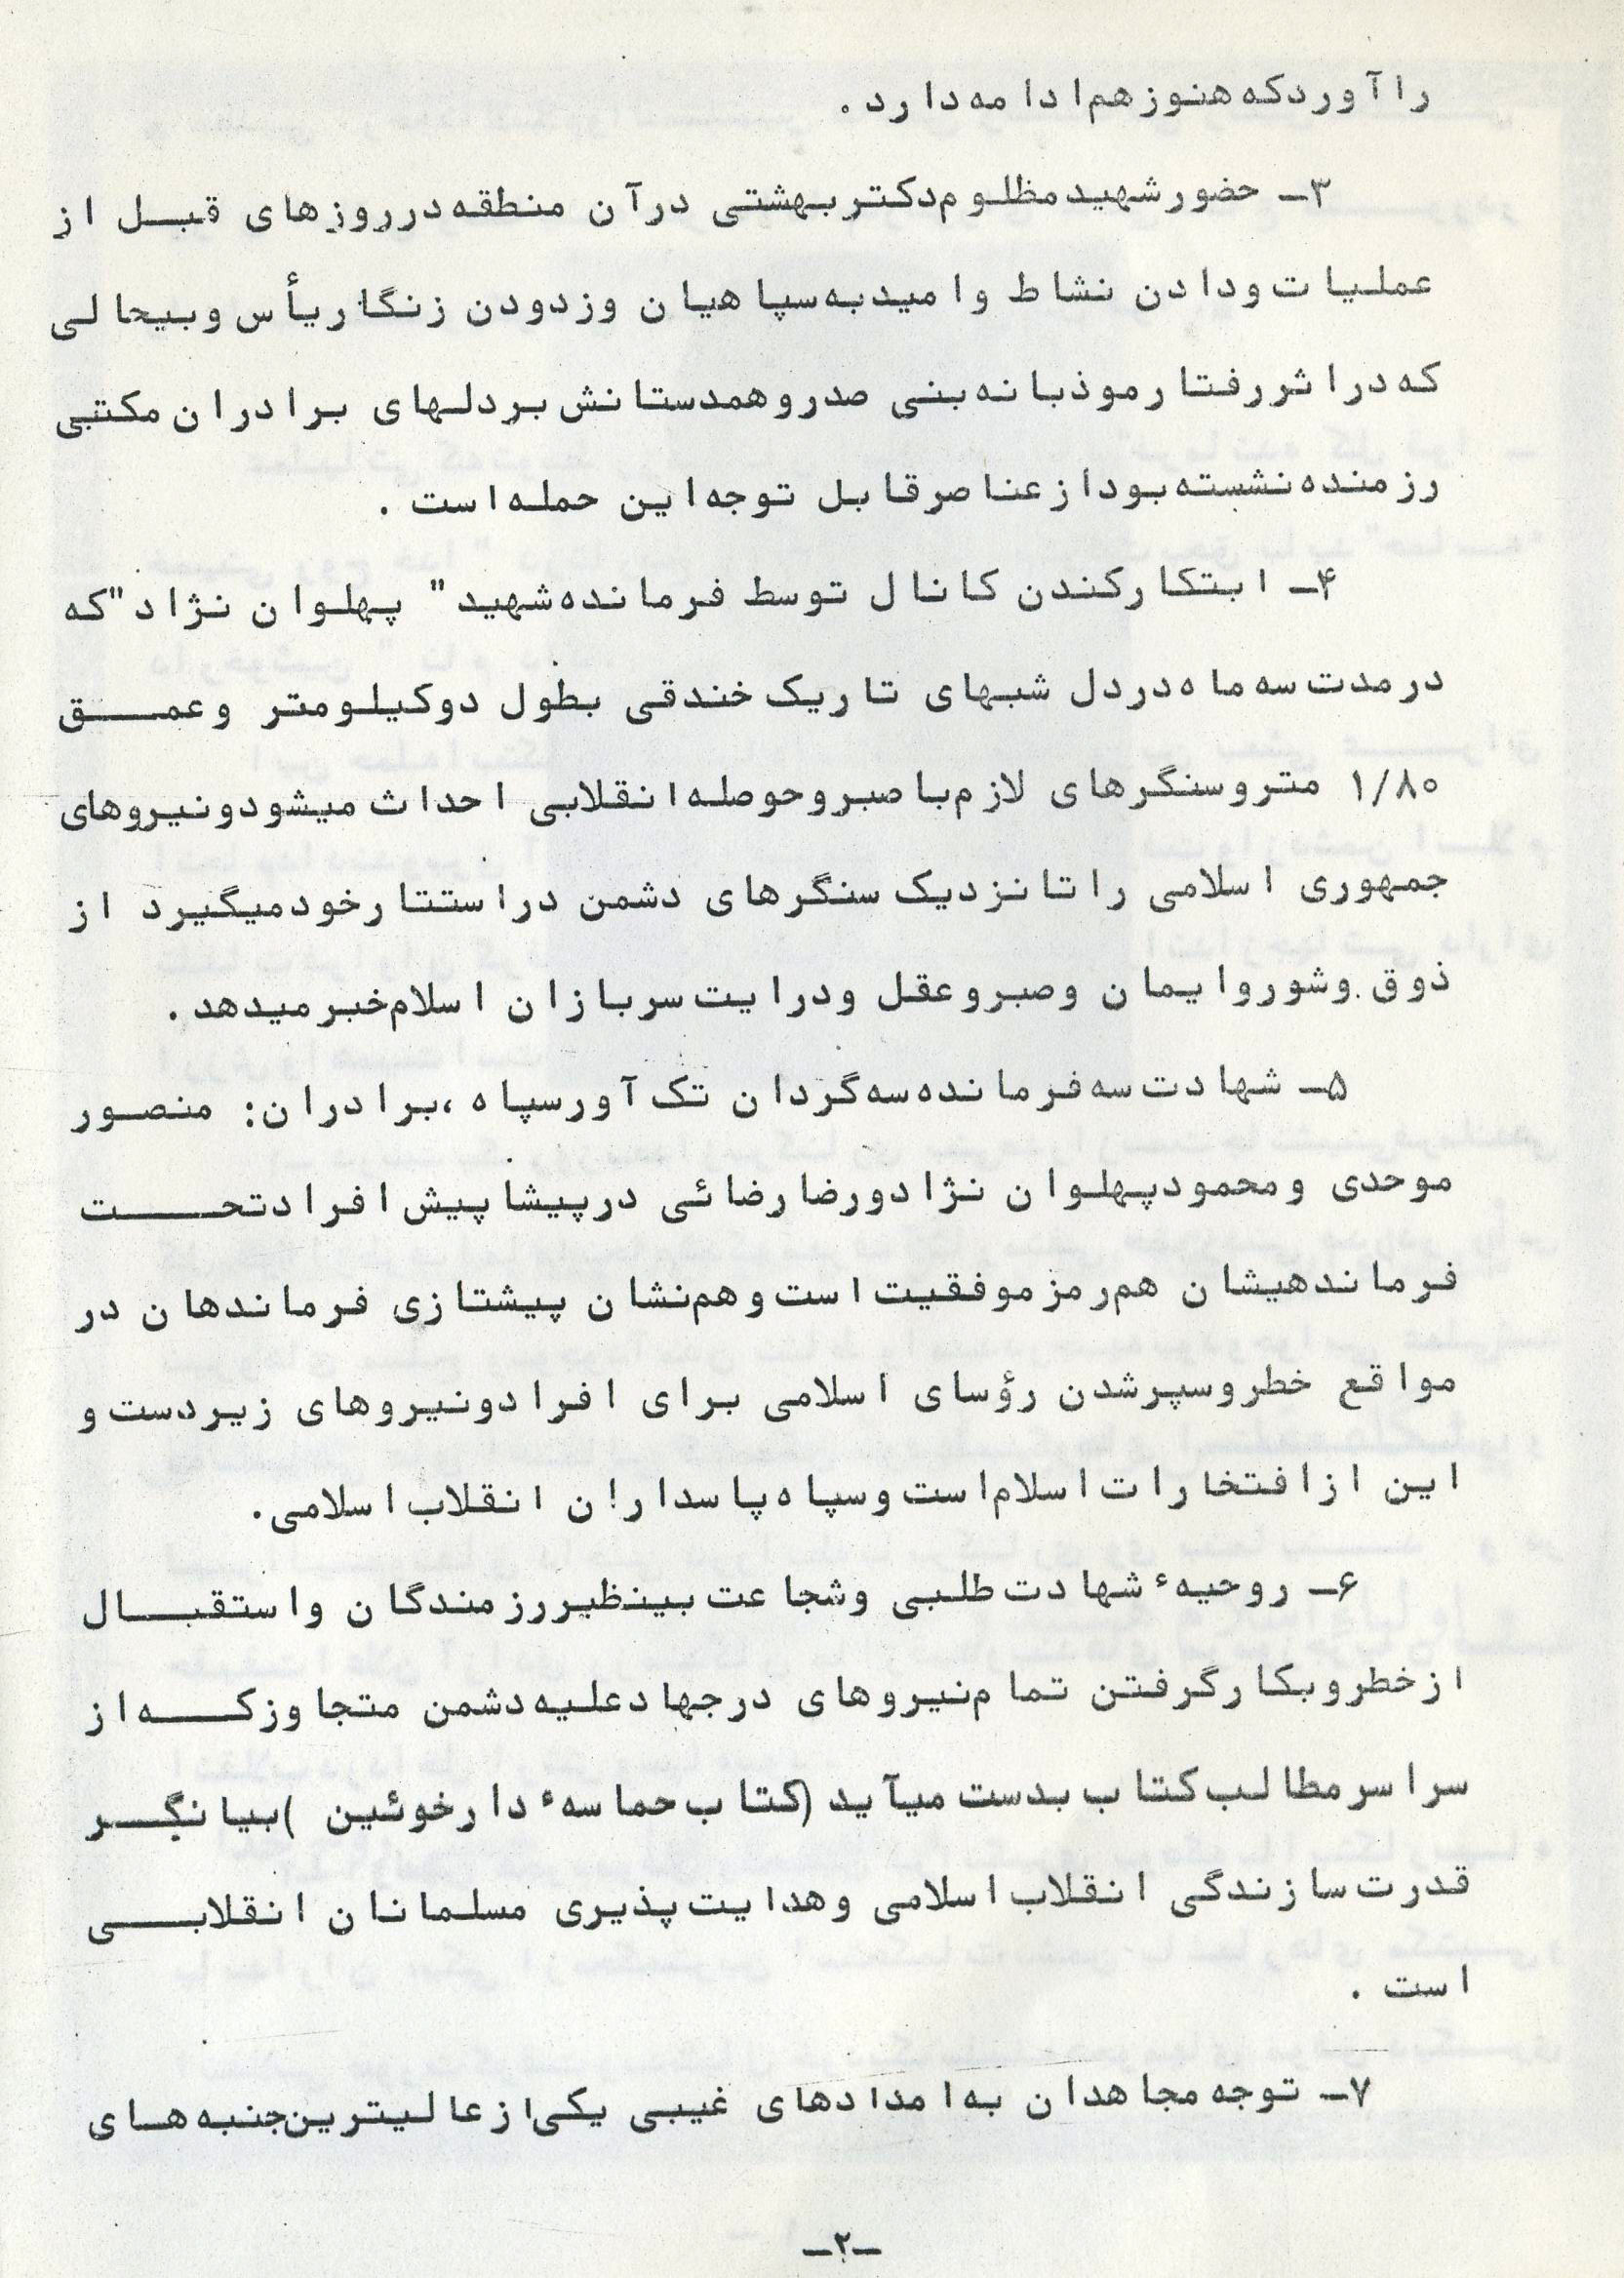 را آورد که هنوز هم ادامه دارد .
۳ـ حضور شهید مظلوم دکتر بهشتی در آن منطقه در روزهای قبل از
عملیات و دادن نشاط و امید به سپاهیان و زدودن زنگار یأس و بیحالی
که در اثر رفتار موذبانه بنی صدر و همدستانش بر دلهای برادران مکتبی
رزمنده نشسته بود از عناصر قابل توجه این حمله است .
۴ـ ابتکار کندن کانال توسط فرمانده شهید " پهلوان نژاد "که
در مدت سه ماه در دل شبهای تاریک خندقی بطول دو کیلومتر و عمق
۱/۸۰ متر و سنگرهای لازم با صبر و حوصله انقلابی احداث میشود و نیروهای
جمهوری اسلامی را تا نزدیک سنگرهای دشمن در استتار خود میگیرد از
ذوق و شور و ایمان و صبر و عقل و درایت سربازان اسلام خبر میدهد .
۵ـ شهادت سه فرمانده سه گردان تک آور سپاه ، برادران : منصور
موحدی و محمود پهلوان نژاد و رضا رضائی در پیشاپیش افراد تحت
فرماندهیشان هم رمز موفقیت است و هم نشان پیشتازی فرماندهان در
مواقع خطر و سپر شدن رؤسای اسلامی برای افراد و نیروهای زیر دست و
این از افتخارات اسلام است و سپاه پاسداران انقلاب اسلامی .
۶ـ روحیهء شهادت طلبی و شجاعت بینظیر رزمندگان و استقبال
از خطر و بکار گرفتن تمام نیروهای در جهاد علیه دشمن متجاوز که از
سراسر مطالب کتاب بدست میآید (کتاب حماسهء دارخوئین ) بیانگر
قدرت سازندگی انقلاب اسلامی و هدایت پذیری مسلمانان انقلابی
است .
۷ـ توجه مجاهدان به امدادهای غیبی یکی از عالیترین جنبه های
ـ۲ـ